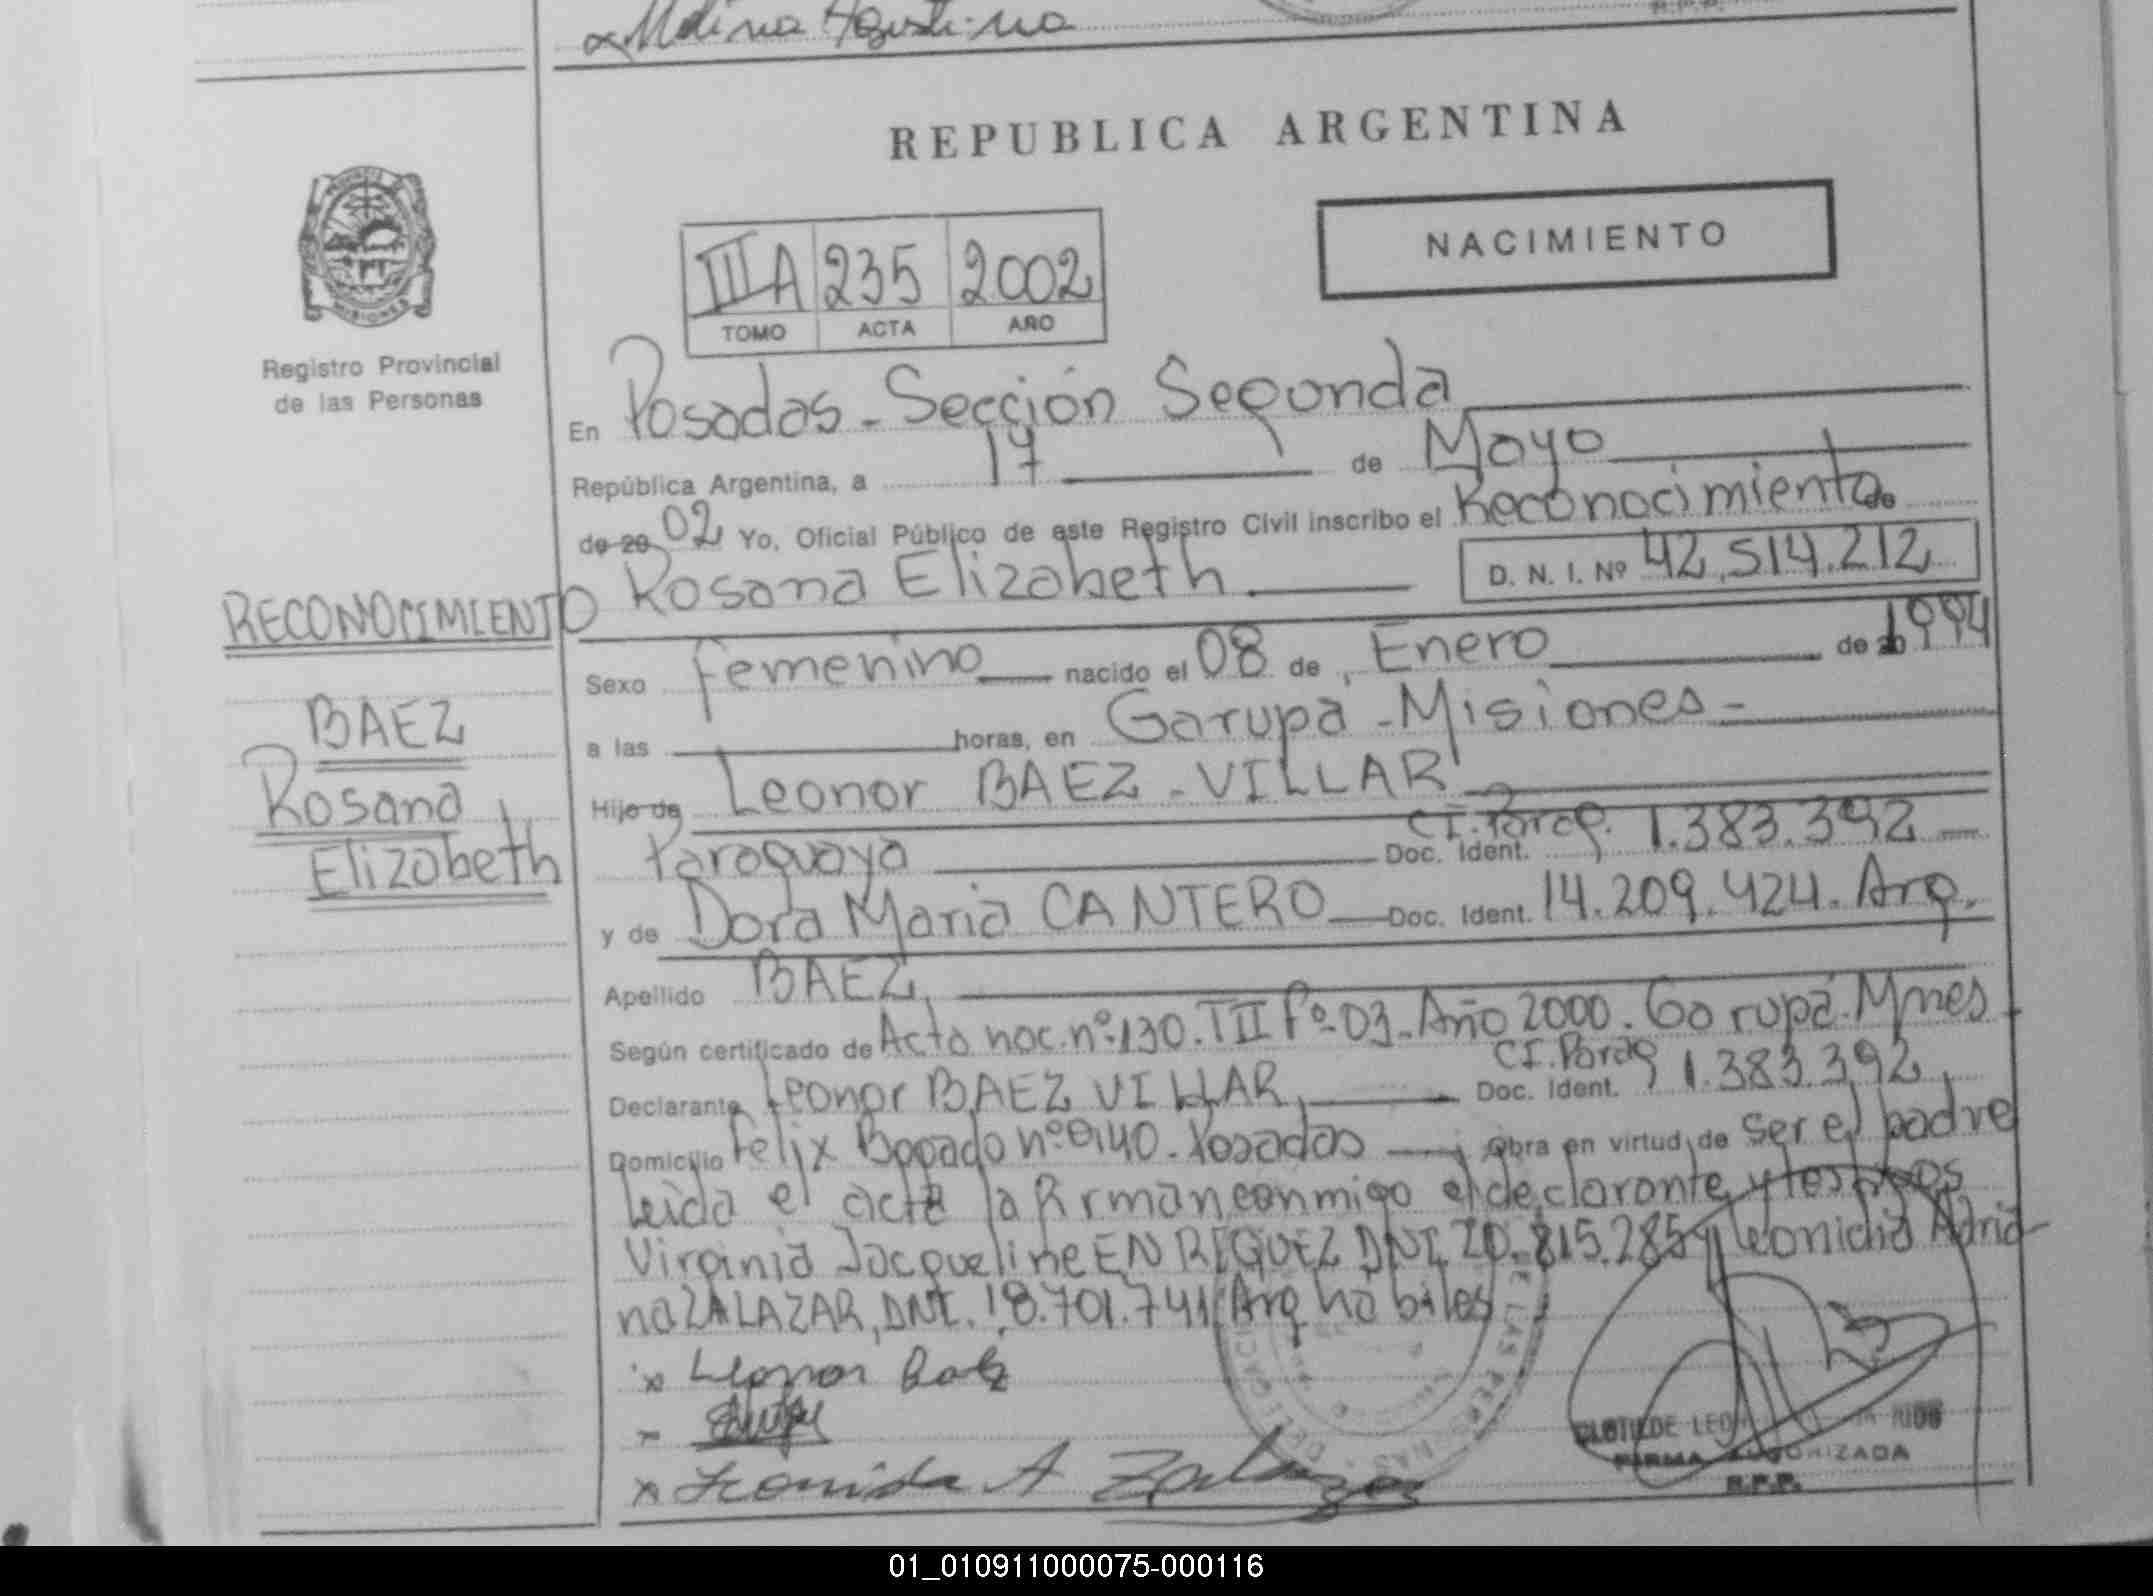 x Molina Agustina
REPUBLICA ARGENTINA
NACIMIENTO
III A 235 2002
TOMO ACTA AÑO
PROVINCIA DE
MISIONES
Registro Provincial
de las Personas
En Posadas - Sección Segunda
República Argentina, a 17 de Mayo
de 20 02 Yo, Oficial Público de este Registro Civil inscribo el Reconocimiento de
Rosana Elizabeth D. N. I. Nº 42.514.212
RECONOCIMIENTO
Sexo femenino nacido el 08 de Enero de 1994
BAEZ
Rosana
Elizabeth
a las horas, en Garupá - Misiones -
Hijo de Leonor BAEZ - VILLAR
Paraguaya Doc. Ident. CI. Parag. 1.383.392
y de Dora Maria CANTERO Doc. Ident. 14.209.424. Arg.
Apellido BAEZ
Según certificado de Acta nac. nº 130. TII fº 03. Año 2000. Garupá. Mnes
Declarante Leonor BAEZ VILLAR, Doc. Ident. CI. Parag 1.383.392,
Domicilio Felix Bogado nº 0140. Posadas obra en virtud de ser el padre
Leida el acta la firman conmigo el declarante y testigos
Virginia Jacqueline ENRIQUEZ DNI 20.815.285 y Leonidia Adria
na ZALAZAR, DNI. 18.701.741 Arg hábiles
x Leonor Baez
x Leonida A Zalazar
DELEGACION
DE LAS PERSONAS
CLOTILDE LEO RIOS
FIRMA AUTORIZADA
R.P.P.
01_010911000075-000116